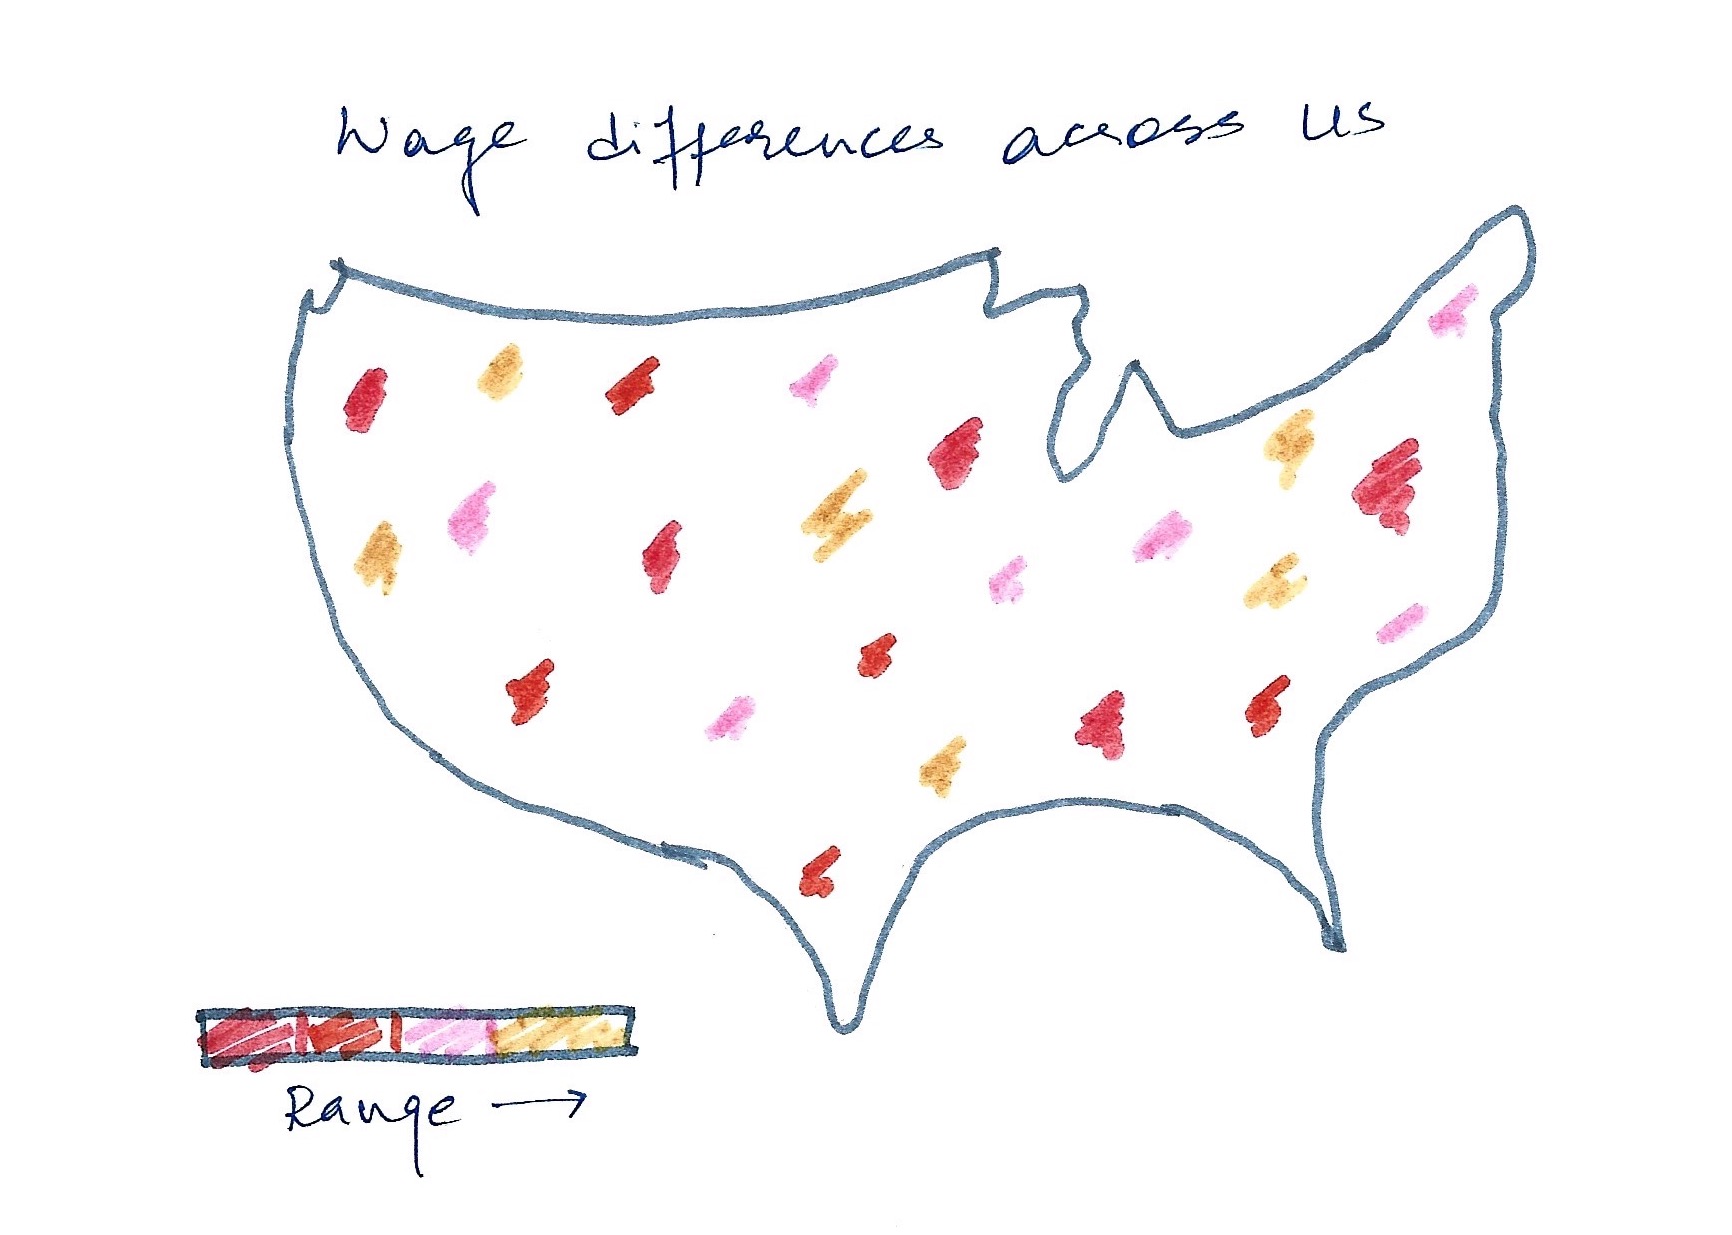 Wage differences across US
Range →